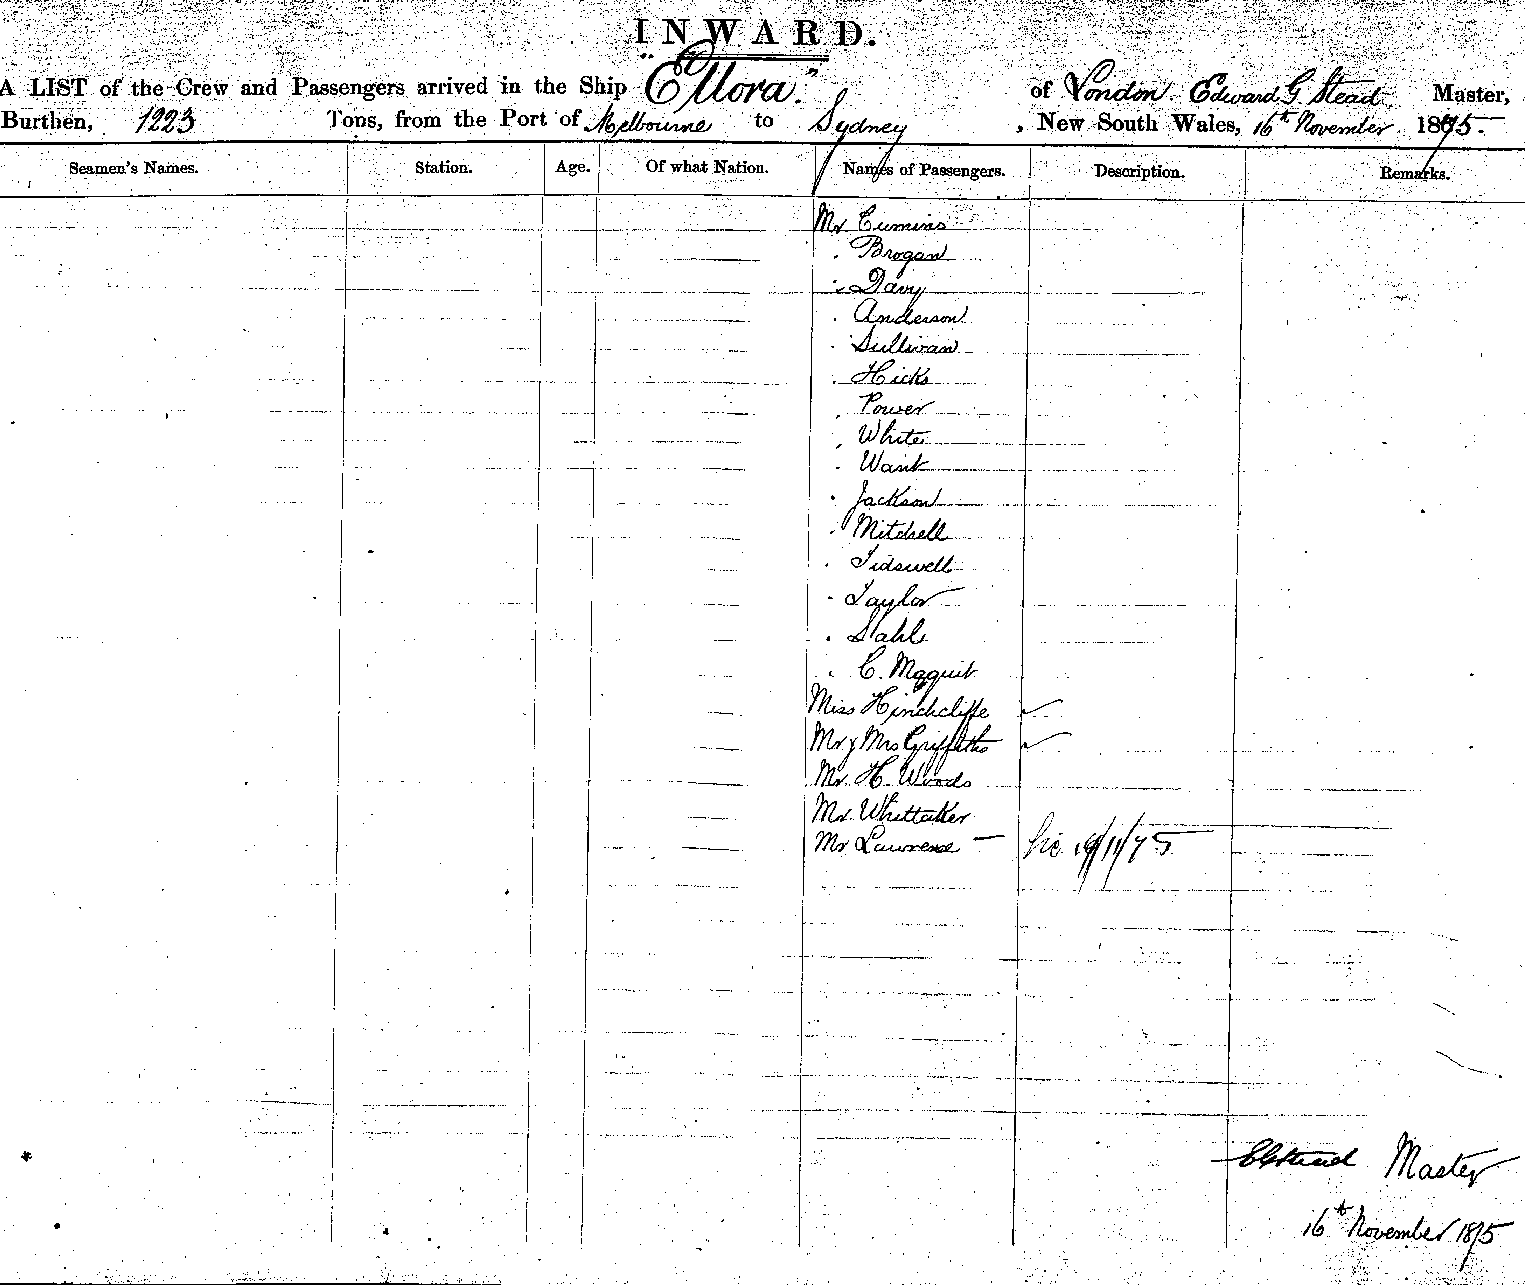 INWARD.
A LIST of the Crew and Passengers arrived in the Ship "Ellora" of London Edward G Stead Master,
Burthen, 1223 Tons, from the Port of Melbourne to Sydney, New South Wales, 16th November 1875.
Seamen's Names. Station. Age. Of what Nation. Names of Passengers. Description. Remarks.
Mr Cumins
" Brogan
" Davy
" Anderson
" Sullivan
" Hicks
" Power
" White
" Want
" Jackson
" Mitchell
" Tidswell
" Taylor
" Stahl
" C.
Miss Hinchcliffe
Mr & Mrs Griffiths
Mr H. Woods
Mr Whittaker
Mr Lawrence 19/11/75
EGStead Master
16th November 1875